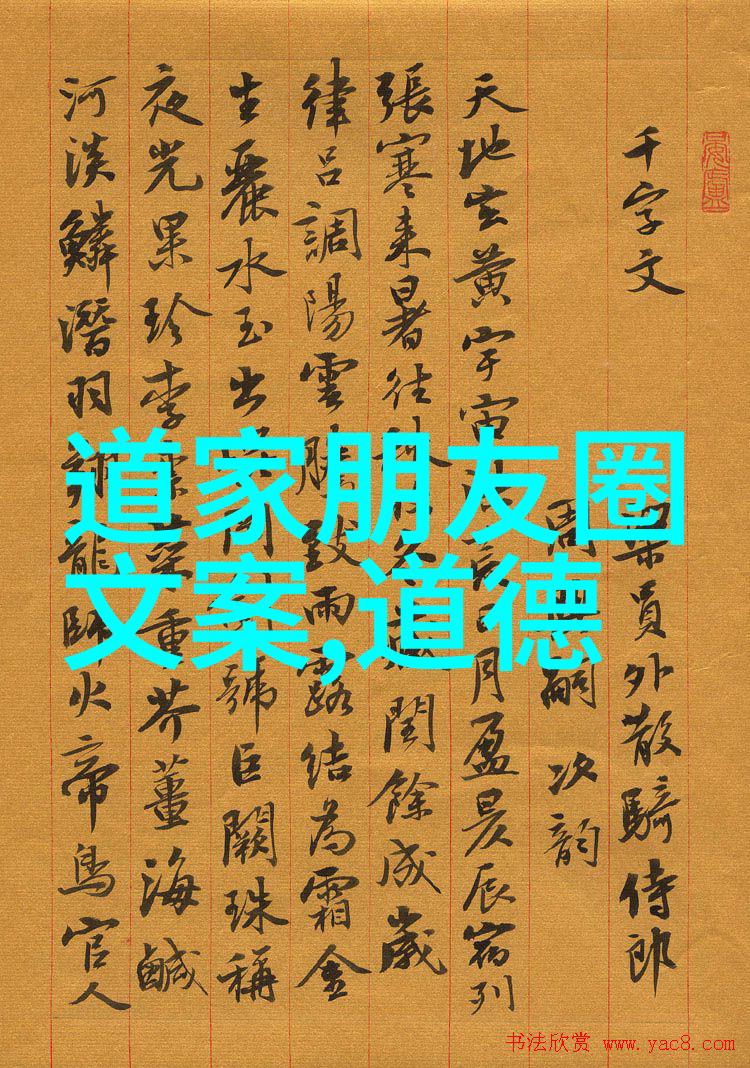 千字文
梁員外散騎侍郎
周興嗣 次韵
天地玄黃宇宙洪荒日月盈昃辰宿列
張寒来暑往秋收冬藏閏餘成歲
律吕調陽雲騰致雨露結為霜金
生麗水玉出崑岡劍號巨闕珠稱
夜光果珍李柰菜重芥薑海鹹
河淡鱗潛羽翔龍師火帝鳥官人
道家朋友圈
文案,道德
书法欣赏 www.yac8.com